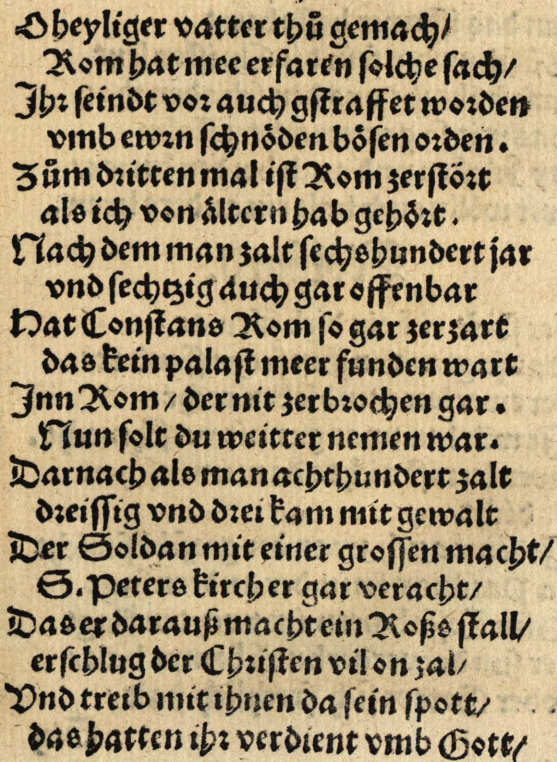 O heyliger vatter thů gemach/
Rom hat mee erfaren solche sach/
Jhr seindt vor auch gstraffet worden
vmb ewrn schnöden bösen orden.
Zům dritten mal ist Rom zerstört
als ich von ältern hab gehört.
Nach dem man zalt sechshundert jar
vnd sechtzig auch gar offenbar
Hat Constans Rom so gar zerzart
das kein palast meer funden wart
Jnn Rom / der nit zerbrochen gar.
Nun solt du weitter nemen war.
Darnach als man achthundert zalt
dreissig vnd drei kam mit gewalt
Der Soldan mit einer grossen macht/
S. Peters kirch er gar veracht/
Das er darauß macht ein Roßs stall/
erschlug der Christen vil on zal/
Vnd treib mit ihnen da sein spott/
das hatten ihr verdient vmb Gott/